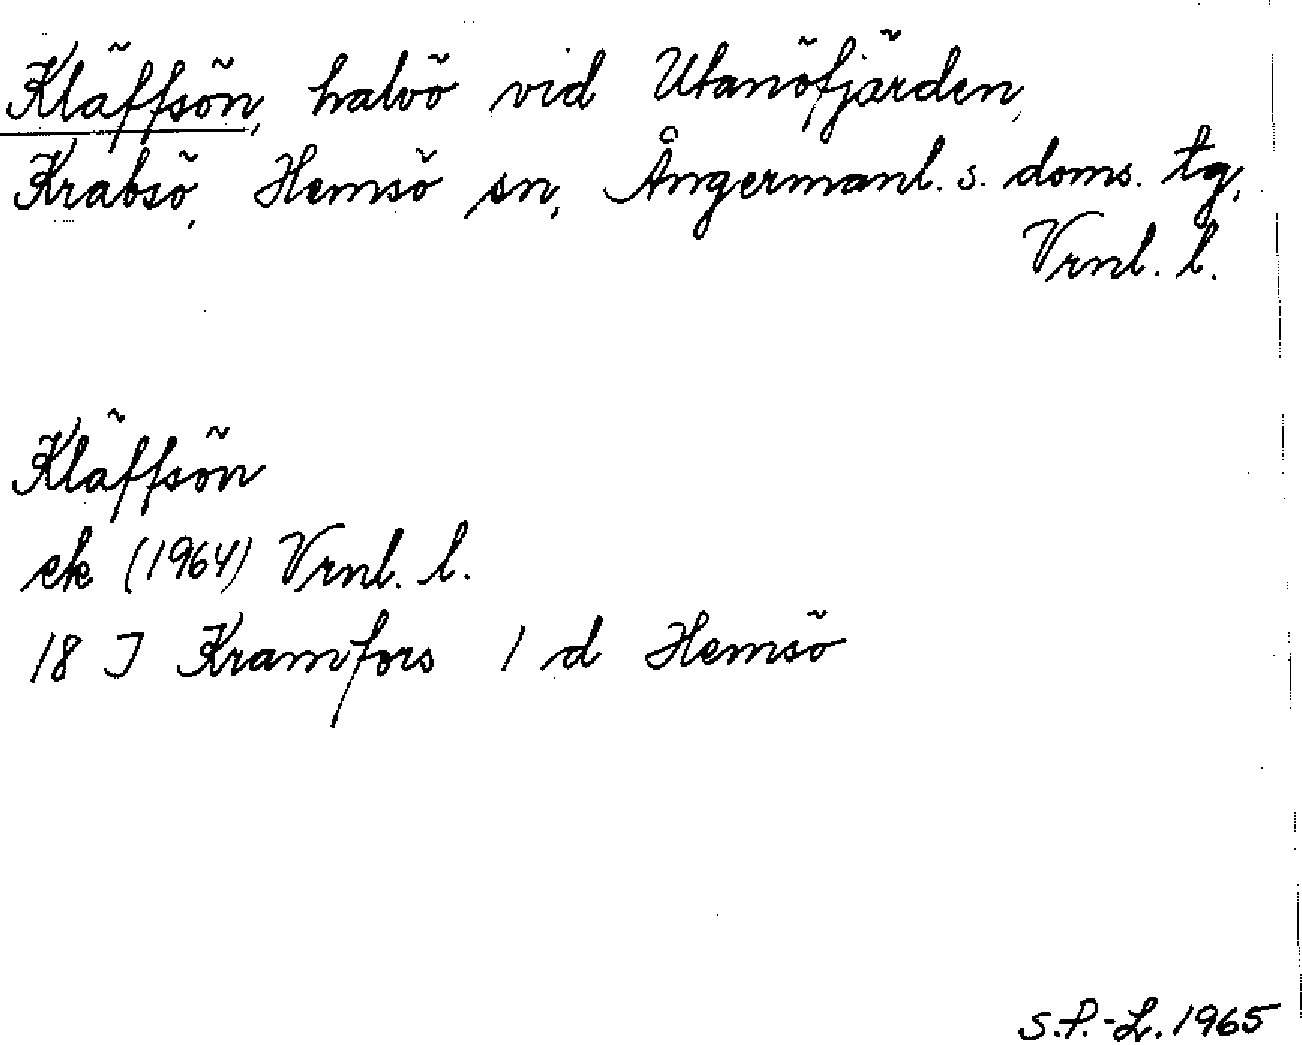 Kläffsön, halvö vid Utanöfjärden,
Krabsö, Hemsö sn, Ångermanl. s. doms. tg,
Vrnl. l.
Kläffsön
ek (1964) Vrnl. l.
18 I Kramfors 1 d Hemsö
S.P.-L. 1965